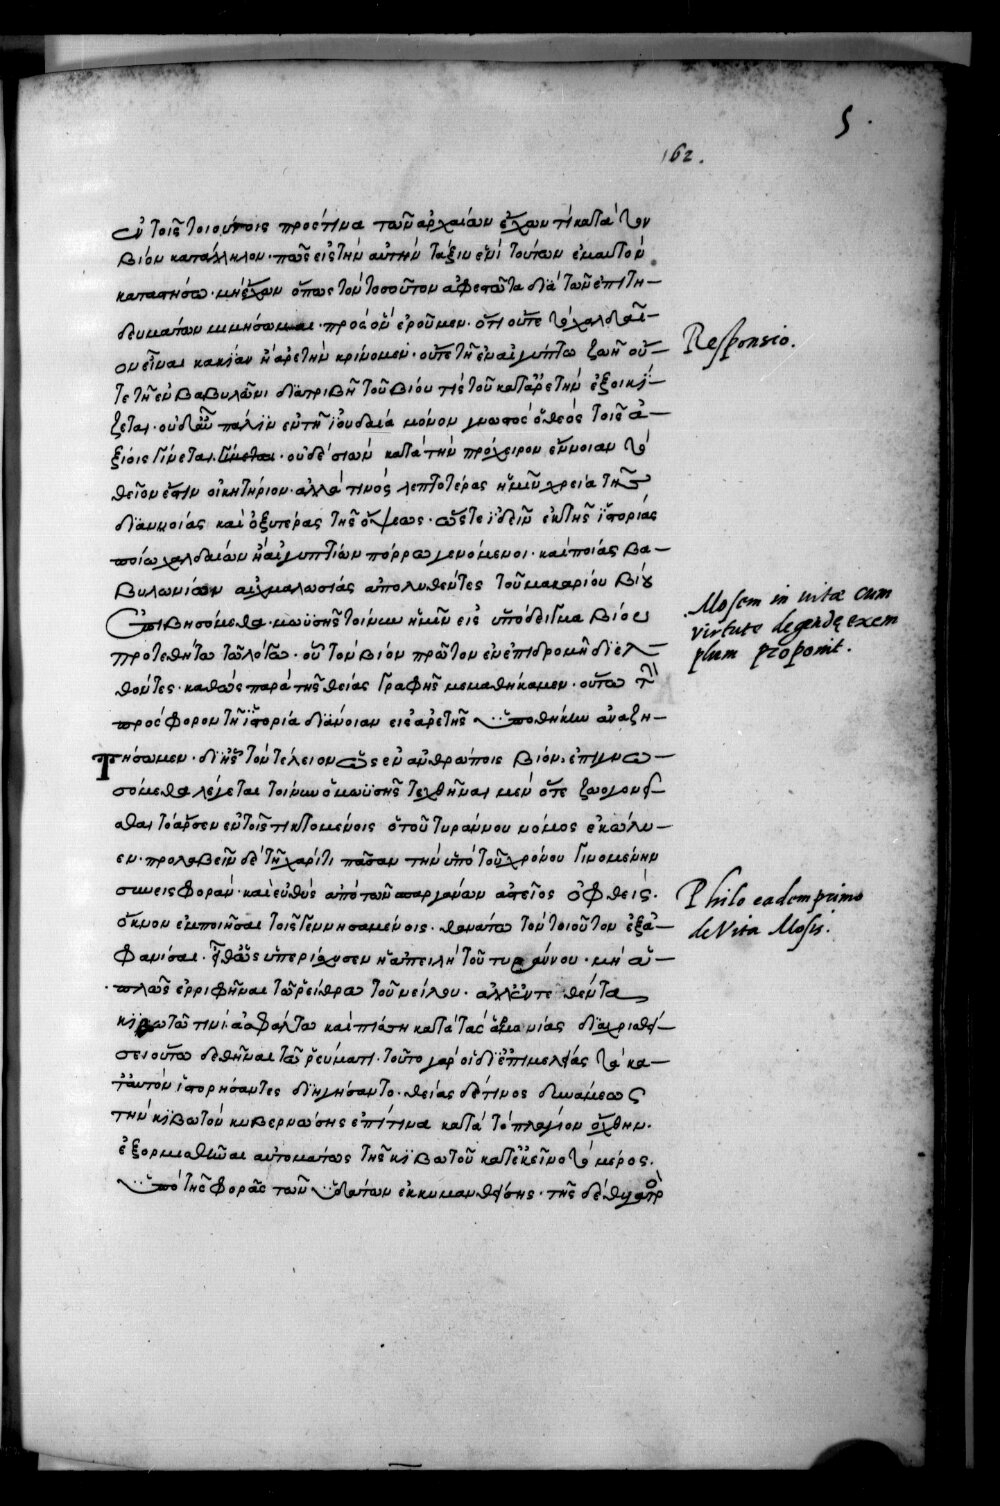 5.
162.
ἐν τοῖς τοιούτοις πρός τινα τῶν ἀρχαίων ἔχων τί κατὰ τὸν
βίον κατάλληλον· πῶς εἰς τὴν αὐτὴν τάξιν ἑνὶ τούτων ἐμαυτὸν
καταστήσω· μὴ ἔχων ὅπως τὸν τοσοῦτον ἀφεστῶτα διὰ τῶν ἐπιτη-
δευμάτων μιμήσωμαι· πρὸς ὃν ἐροῦμεν· ὅτι οὔτε τὸ χαλδαῖ-
ον εἶναι κακίαν ἢ ἀρετὴν κρίνομεν· οὔτε τῇ ἐν αἰγύπτω ζωῇ οὔ-
τε τῇ ἐν βαβυλῶνι διατριβῇ τοῦ βίου τις τοῦ κατ' ἀρετὴν ἐξοικί-
ζεται· οὐδ' αὖ πάλιν ἐν τῇ ἰουδαία μόνον γνωστὸς ὁ θεὸς τοῖς ἀ-
ξίοις γίνεται γίνεται· οὐδὲ σιὼν κατὰ τὴν πρόχειρον ἔννοιαν τὸ
θεῖον ἐστιν οἰκητήριον· ἀλλά τινος λεπτοτέρας ἡμῖν χρεία τῆς
διανοίας καὶ ὀξυτέρας τῆς ὄψεως· ὥστε ἰδεῖν ἐκ τῆς ἱστορίας
ποίω χαλδαίων ἢ αἰγυπτίων πόρρω γενόμενοι· καὶ ποίας βα-
βυλωνίων αἰχμαλωσίας ἀπολυθέντες τοῦ μακαρίου βίου
ἐπιβησόμεθα· μωϋσῆς τοίνυν ἡμῖν εἰς ὑπόδειγμα βίου
προτεθήτω τῶ λόγω· οὗ τὸν βίον πρῶτον ἐν ἐπιδρομῆ διελ-
θόντες· καθὼς παρὰ τῆς θείας γραφῆς μεμαθήκαμεν· οὕτω τὴν
πρόσφορον τῆ ἱστορία διάνοιαν εἰς ἀρετῆς ὑποθήκην ἀναζη-
Τήσωμεν· δι' ἧς τὸν τέλειον ὡς ἐν ἀνθρώποις βίον, ἐπιγνω-
σόμεθα λέγεται τοίνυν ὁ μωϋσῆς τεχθῆναι μὲν ὅτε ζωογονεῖ-
σθαι τὸ ἄρσεν ἐν τοῖς τικτομένοις ὁ τοῦ τυράννου νόμος ἐκώλυ-
εν· προλαβεῖν δὲ τῆ χάριτι πᾶσαν τὴν ὑπὸ τοῦ χρόνου γινομένην
συνεισφοράν· καὶ εὐθὺς ἀπὸ τῶν σπαργάνων ἀστεῖος ὀφθεὶς·
ὄκνον ἐμποιῆσαι τοῖς γεννησαμένοις· θανάτω τὸν τοιοῦτον ἐξα-
φανίσαι· ὡς ὑπερίσχυσεν ἡ ἀπειλὴ τοῦ τυράννου· μὴ ἁ-
πλῶς ἐρριφῆναι τῶ ῥείθρω τοῦ νείλου· ἀλλ' ἐντεθέντα
κιβωτῶ τινι ἀσφάλτω καὶ πίσση κατὰ τὰς ἁρμονίας διαχρισθεί-
σει οὕτω δεθῆναι τῶ ῥεύματι· τοῦτο γὰρ οἱ δι' ἐπιμελείας τὸ κα-
τ' αὐτὸν ἱστορήσαντες διηγήσαντο· θείας δέ τινος δυνάμεως
τὴν κιβωτὸν κυβερνώσης ἐπί τινα κατὰ τὸ πλάγιον ὄχθην·
ἐξορμισθῆναι αὐτομάτως τῆς κιβωτοῦ κατ' ἐκεῖνο τὸ μέρος·
ὑπὸ τῆς φορᾶς τῶν ὑδάτων ἐκκυμανθείσης· τῆς δὲ θυγατρὸ
Responsio.
Mosem in vitæ cum
virtute degendę exem
plum proponit.
Philo eadem primo
de Vita Mosis.